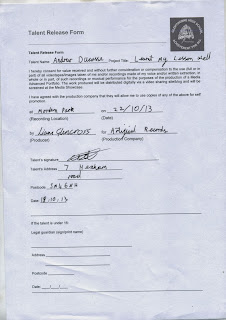 Talent Release Form
Talent Release Form
Talent Name Andrew Project Title Learnt My Lesson Well
I hereby consent for value received and without further consideration or compensation to the use (full or in
part) of all videotapes/images taken of me and/or recordings made of my voice and/or written extraction, in
whole or in part, of such recordings or musical performance for the purposes of the production of a Media
Advanced Portfolio. The work produced will be distributed digitally via a personal planning site/blog and will be
screened at the Media Showcase.
I have agreed with the production company that they will allow me to use copies of any of the above for self
promotion.
at Morden Park on 22/10/13
(Recording Location) (Date)
by Liam for Records
(Producer) (Production Company)
Talent's signature
Talent's Address 7
road
Postcode
Date: 18.10.13
If the talent is under 18:
Legal guardian (sign/print name)
Address
Postcode
Date: / /